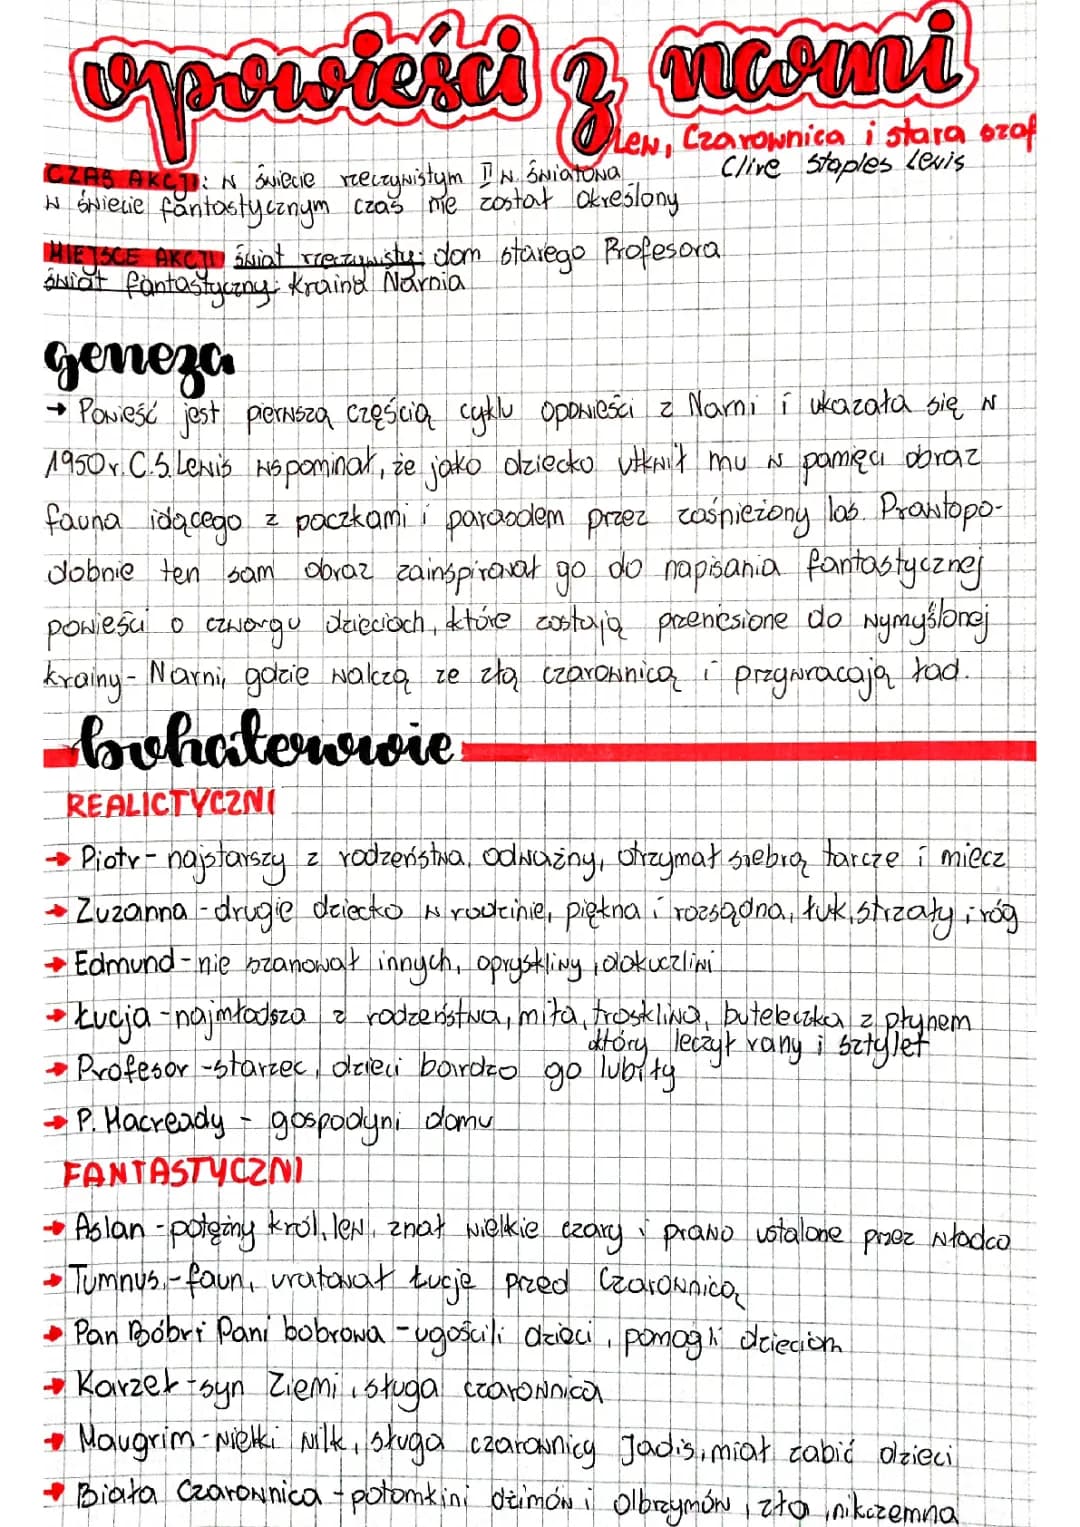 opowieści z narni
Lew, Czarownica i stara szaf
Clive Staples Lewis
CZAS AKCJI: w świecie rzeczywistym II w. światowa
w świecie fantastycznym czas nie został określony
MIEJSCE AKCJI świat rzeczywisty: dom starego Profesora
świat fantastyczny: kraina Narnia
geneza
→ Powieść jest pierwszą częścią cyklu opowieści z Narni i ukazała się w
1950r. C.S. Lewis wspominał, że jako dziecko utkwił mu w pamięci obraz
fauna idącego z paczkami i parasolem przez zaśnieżony las. Prawdopo-
dobnie ten sam obraz zainspirował go do napisania fantastycznej
powieści o czworgu dzieciach, które zostają przeniesione do wymyślonej
krainy - Narni, gdzie walczą ze złą czarownicą i przywracają ład.
bohaterowie
REALICTYCZNI
→ Piotr - najstarszy z rodzeństwa, odważny, otrzymał srebrą tarcze i miecz
→ Zuzanna - drugie dziecko w rodzinie, piękna i rozsądna, łuk, strzały i róg
→ Edmund - nie szanował innych, opryskliwy, dokuczliwi
→ Łucja - najmłodsza z rodzeństwa, miła, troskliwa, buteleczka z płynem
który leczył rany i sztylet
→ Profesor - starzec, dzieci bardzo go lubiły
→ P. Macready - gospodyni domu
FANTASTYCZNI
→ Aslan - potężny król, lew, znał wielkie czary i prawo ustalone przez władco
→ Tumnus, - faun, uratował Łucje przed Czarownicą
→ Pan Bóbr i Pani bobrowa - ugościli dzieci, pomogli dzieciom
→ Karzeł - syn Ziemi, sługa czarownica
→ Maugrim - wielki wilk, sługa czarownicy Jadis, miał zabić dzieci
→ Biała Czarownica - potomkini dżimów i Olbrzymów, zła, nikczemna